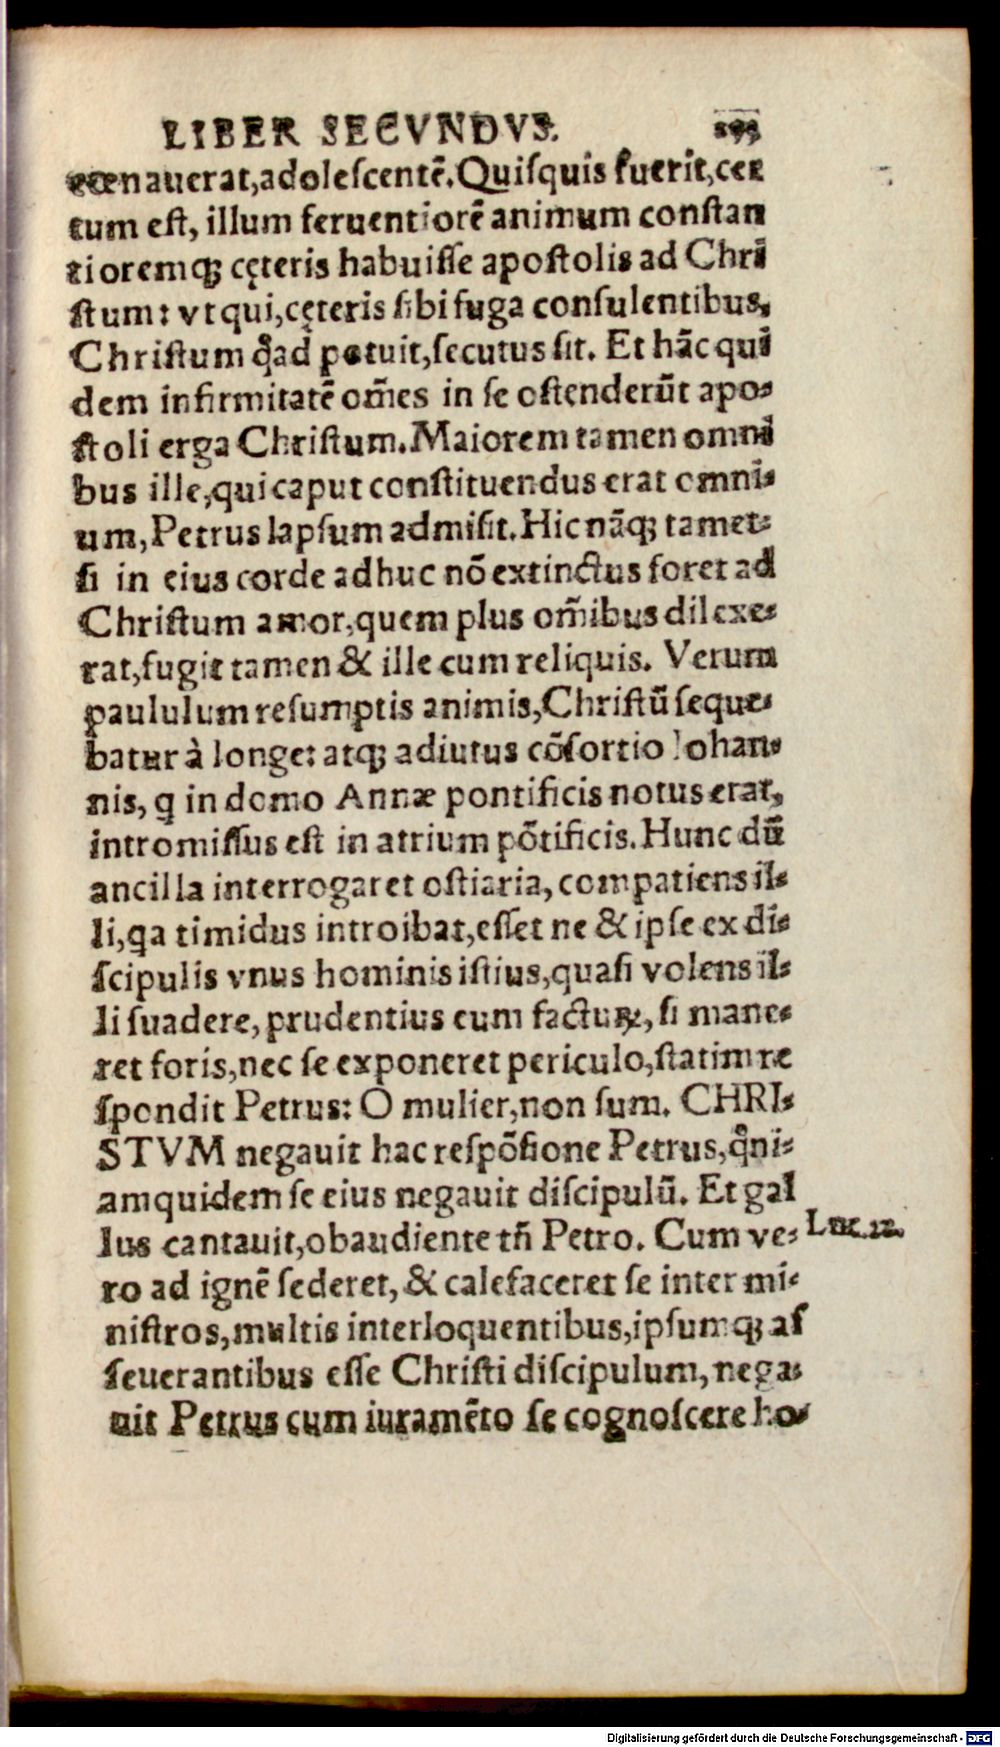 LIBER SECVNDVS. 193
cœnauerat,adoleſcentē.Quiſquis fuerit,cer
tum eſt, illum feruentiorē animum conſtan
tioremq́ꝫ cęteris habuiſſe apoſtolis ad Chri
ſtum: vt qui,cęteris ſibi fuga conſulentibus,
Chriſtum qͦad potuit,ſecutus ſit. Et hāc qui
dem infirmitatē om̄es in ſe oſtenderūt apo-
ſtoli erga Chriſtum.Maiorem tamen omni
bus ille,qui caput conſtituendus erat omni-
um,Petrus lapſum admiſit.Hic nāqꝫ tamet-
ſi in eius corde adhuc nō extinctus foret ad
Chriſtum amor,quem plus om̄ibus dilexe-
rat,fugit tamen & ille cum reliquis. Verum
paululum reſumptis animis,Chriſtū ſeque-
batur à longe: atqꝫ adiutus cōſortio Iohan-
nis, q in domo Annæ pontificis notus erat,
intromiſſus eſt in atrium pōtificis.Hunc dū
ancilla interrogaret oſtiaria, compatiens il-
li,qa timidus introibat,eſſet ne & ipſe ex di-
ſcipulis vnus hominis iſtius,quaſi volens il-
li ſuadere, prudentius eum factuꝝ, ſi mane-
ret foris,nec ſe exponeret periculo,ſtatim re
ſpondit Petrus: O mulier,non ſum. CHRI-
STVM negauit hac reſpōſione Petrus,qͦni-
amquidem ſe eius negauit diſcipulū. Et gal
lus cantauit,obaudiente tñ Petro. Cum ve- Luc.22.
ro ad ignē ſederet, & calefaceret ſe inter mi-
niſtros,multis interloquentibus,ipſumqꝫ aſ
ſeuerantibus eſſe Chriſti diſcipulum, nega-
uit Petrus cum iuramēto ſe cognoſcere ho-
Digitalisierung gefördert durch die Deutsche Forschungsgemeinschaft - DFG